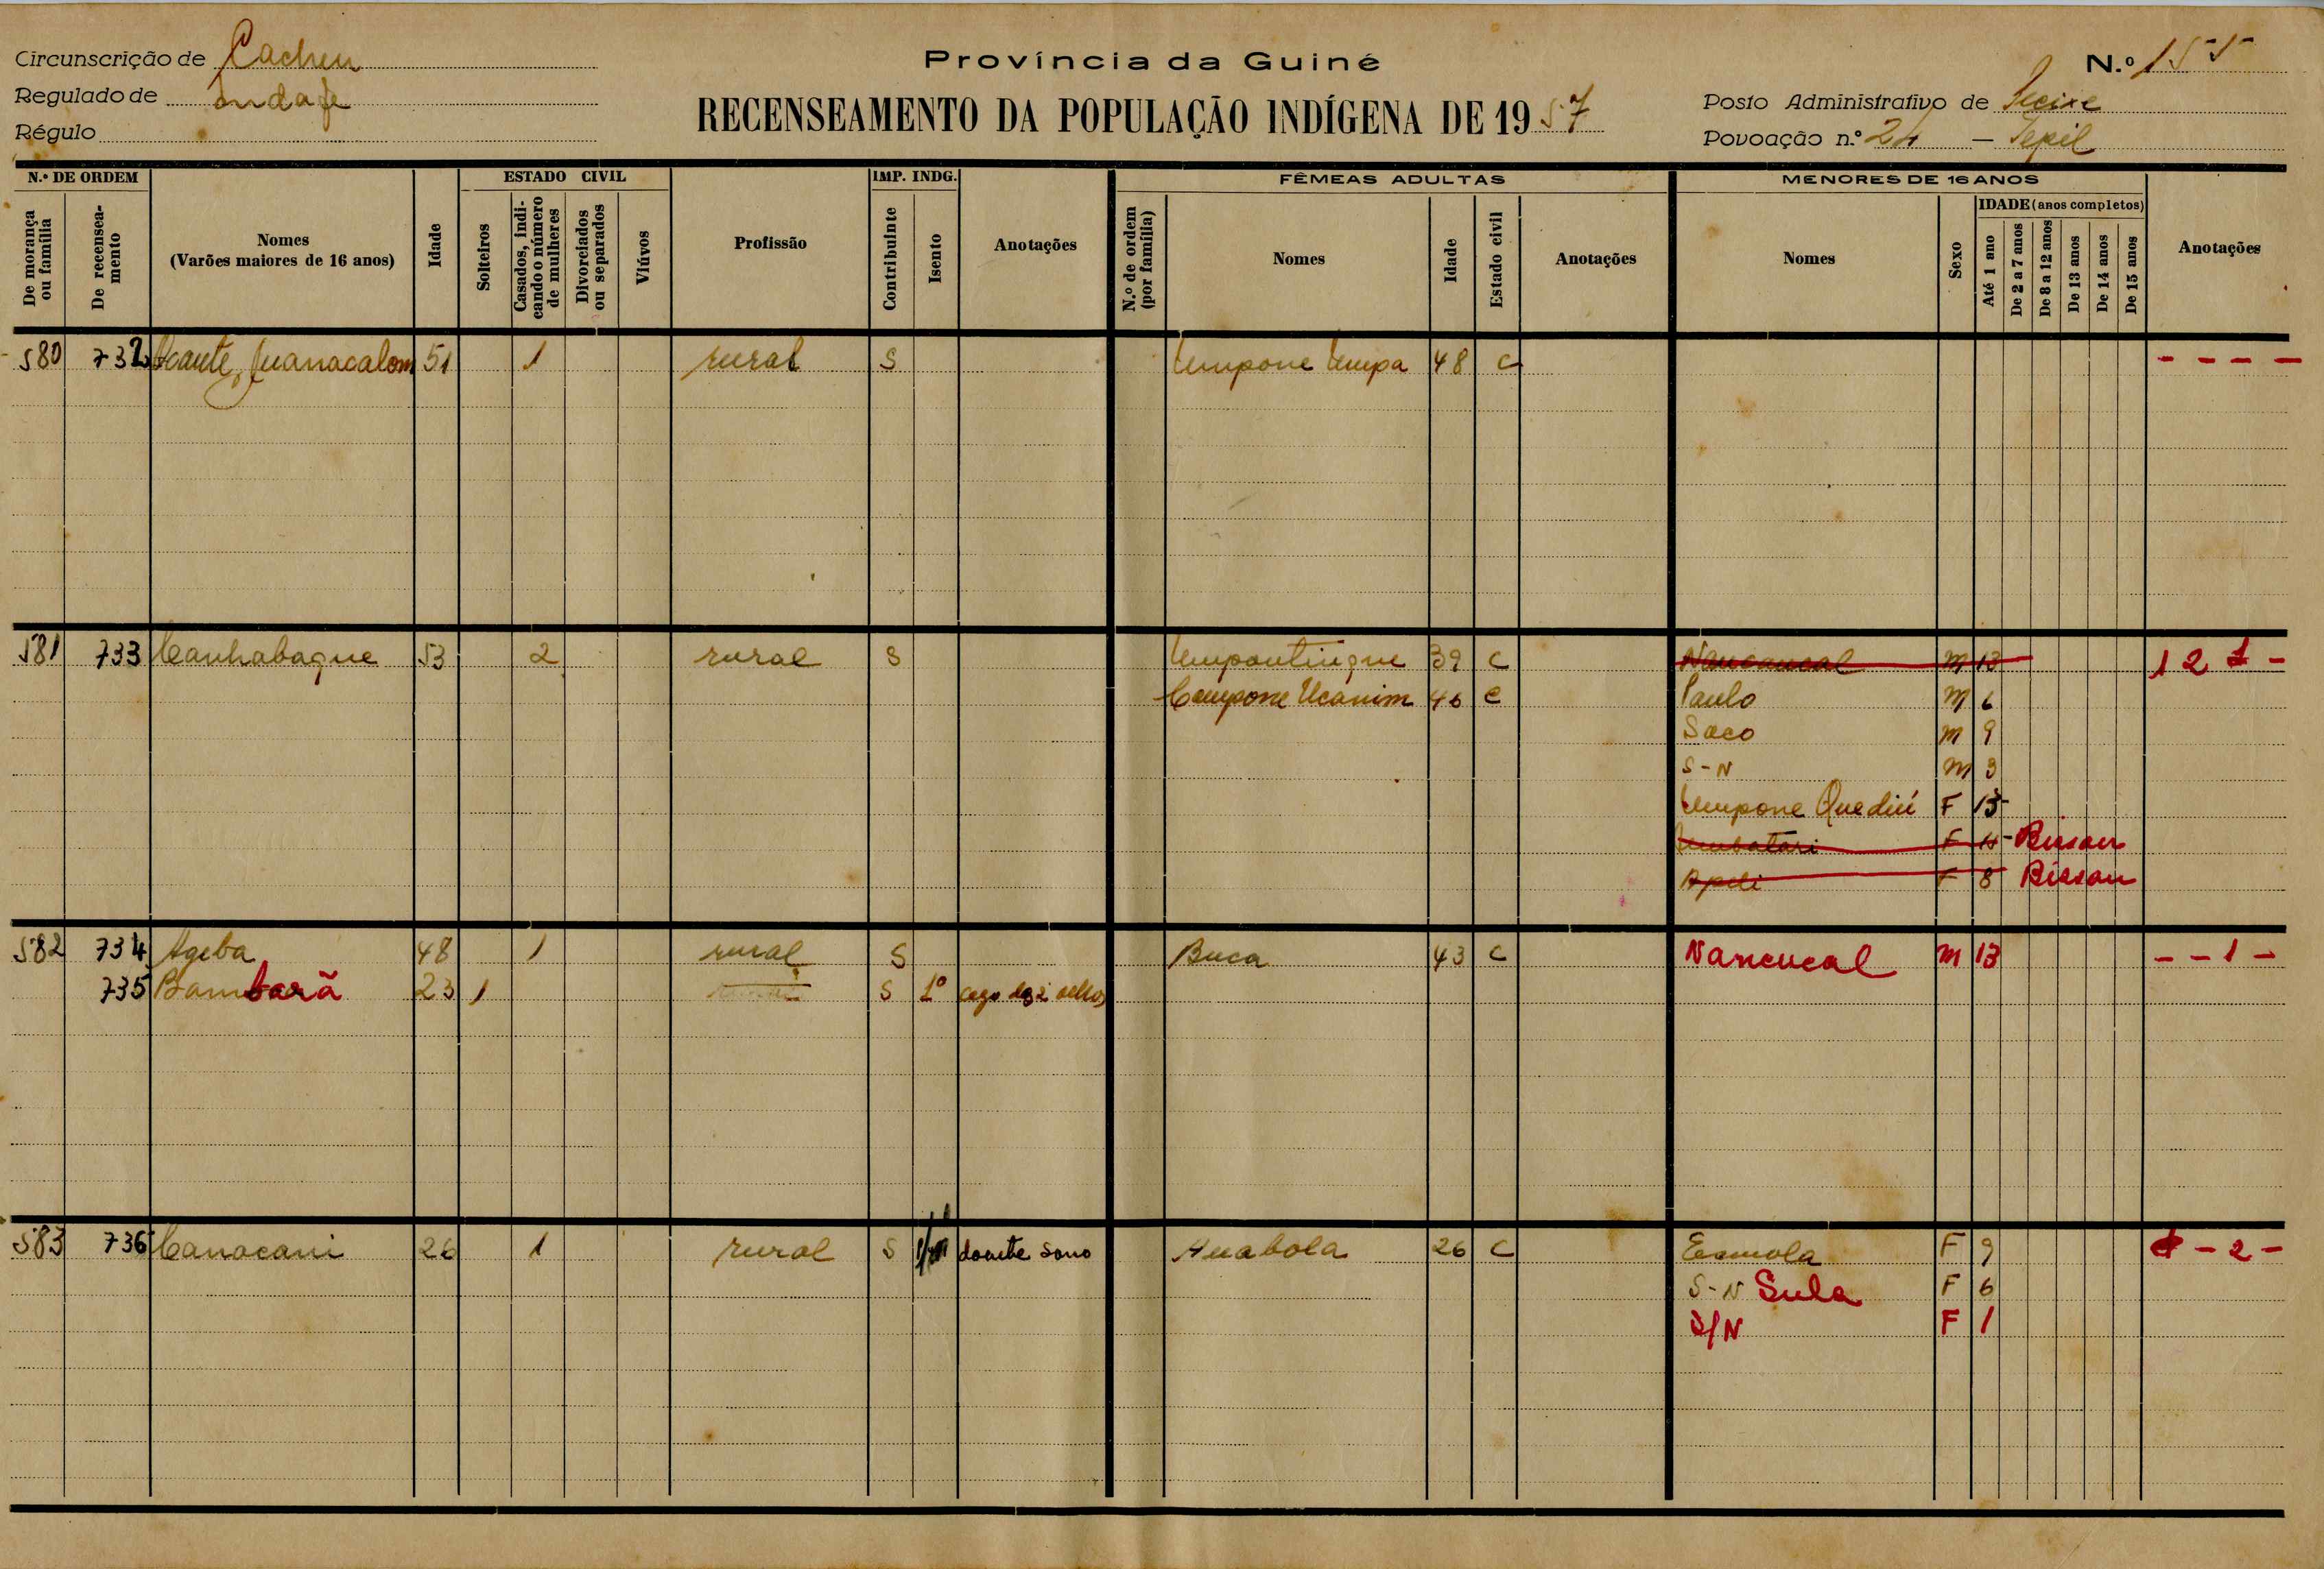 Circunscrição de Cacheu
Província da Guiné
N.º 155
Regulado de Andafe
RECENSEAMENTO DA POPULAÇÃO INDÍGENA DE 1957
Posto Administrativo de
Régulo
Povoação n.º 24 — Tepil
N.º DE ORDEM
ESTADO CIVIL
IMP. INDG.
FÊMEAS ADULTAS
MENORES DE 16 ANOS
IDADE (anos completos)
De morança ou família
De recenseamento
Nomes (Varões maiores de 16 anos)
Idade
Solteiros
Casados, indicando o número de mulheres
Divorciados ou separados
Viúvos
Profissão
Contribuinte
Isento
Anotações
N.º de ordem (por família)
Nomes
Idade
Estado civil
Anotações
Nomes
Sexo
Até 1 ano
De 2 a 7 anos
De 8 a 12 anos
De 13 anos
De 14 anos
De 15 anos
Anotações
580 732 51 1 rural S 48 C - - - -
581 733 Canhabaque 53 2 rural S 39 C M 13 1 2 1 -
Campone Ucanim 46 C Paulo M 6
Saco M 9
S-N M 3
F 15
F Bissau
Apeli F 8 Bissau
582 734 Ageba 48 1 rural S Buca 43 C Nancucal M 13 - - 1 -
735 Bambarã 23 1 S 1º cego dos 2 olhos
583 736 Canacani 26 1 rural S doente sono 26 C F 9 - 2 -
S-N Sula F 6
S/N F 1